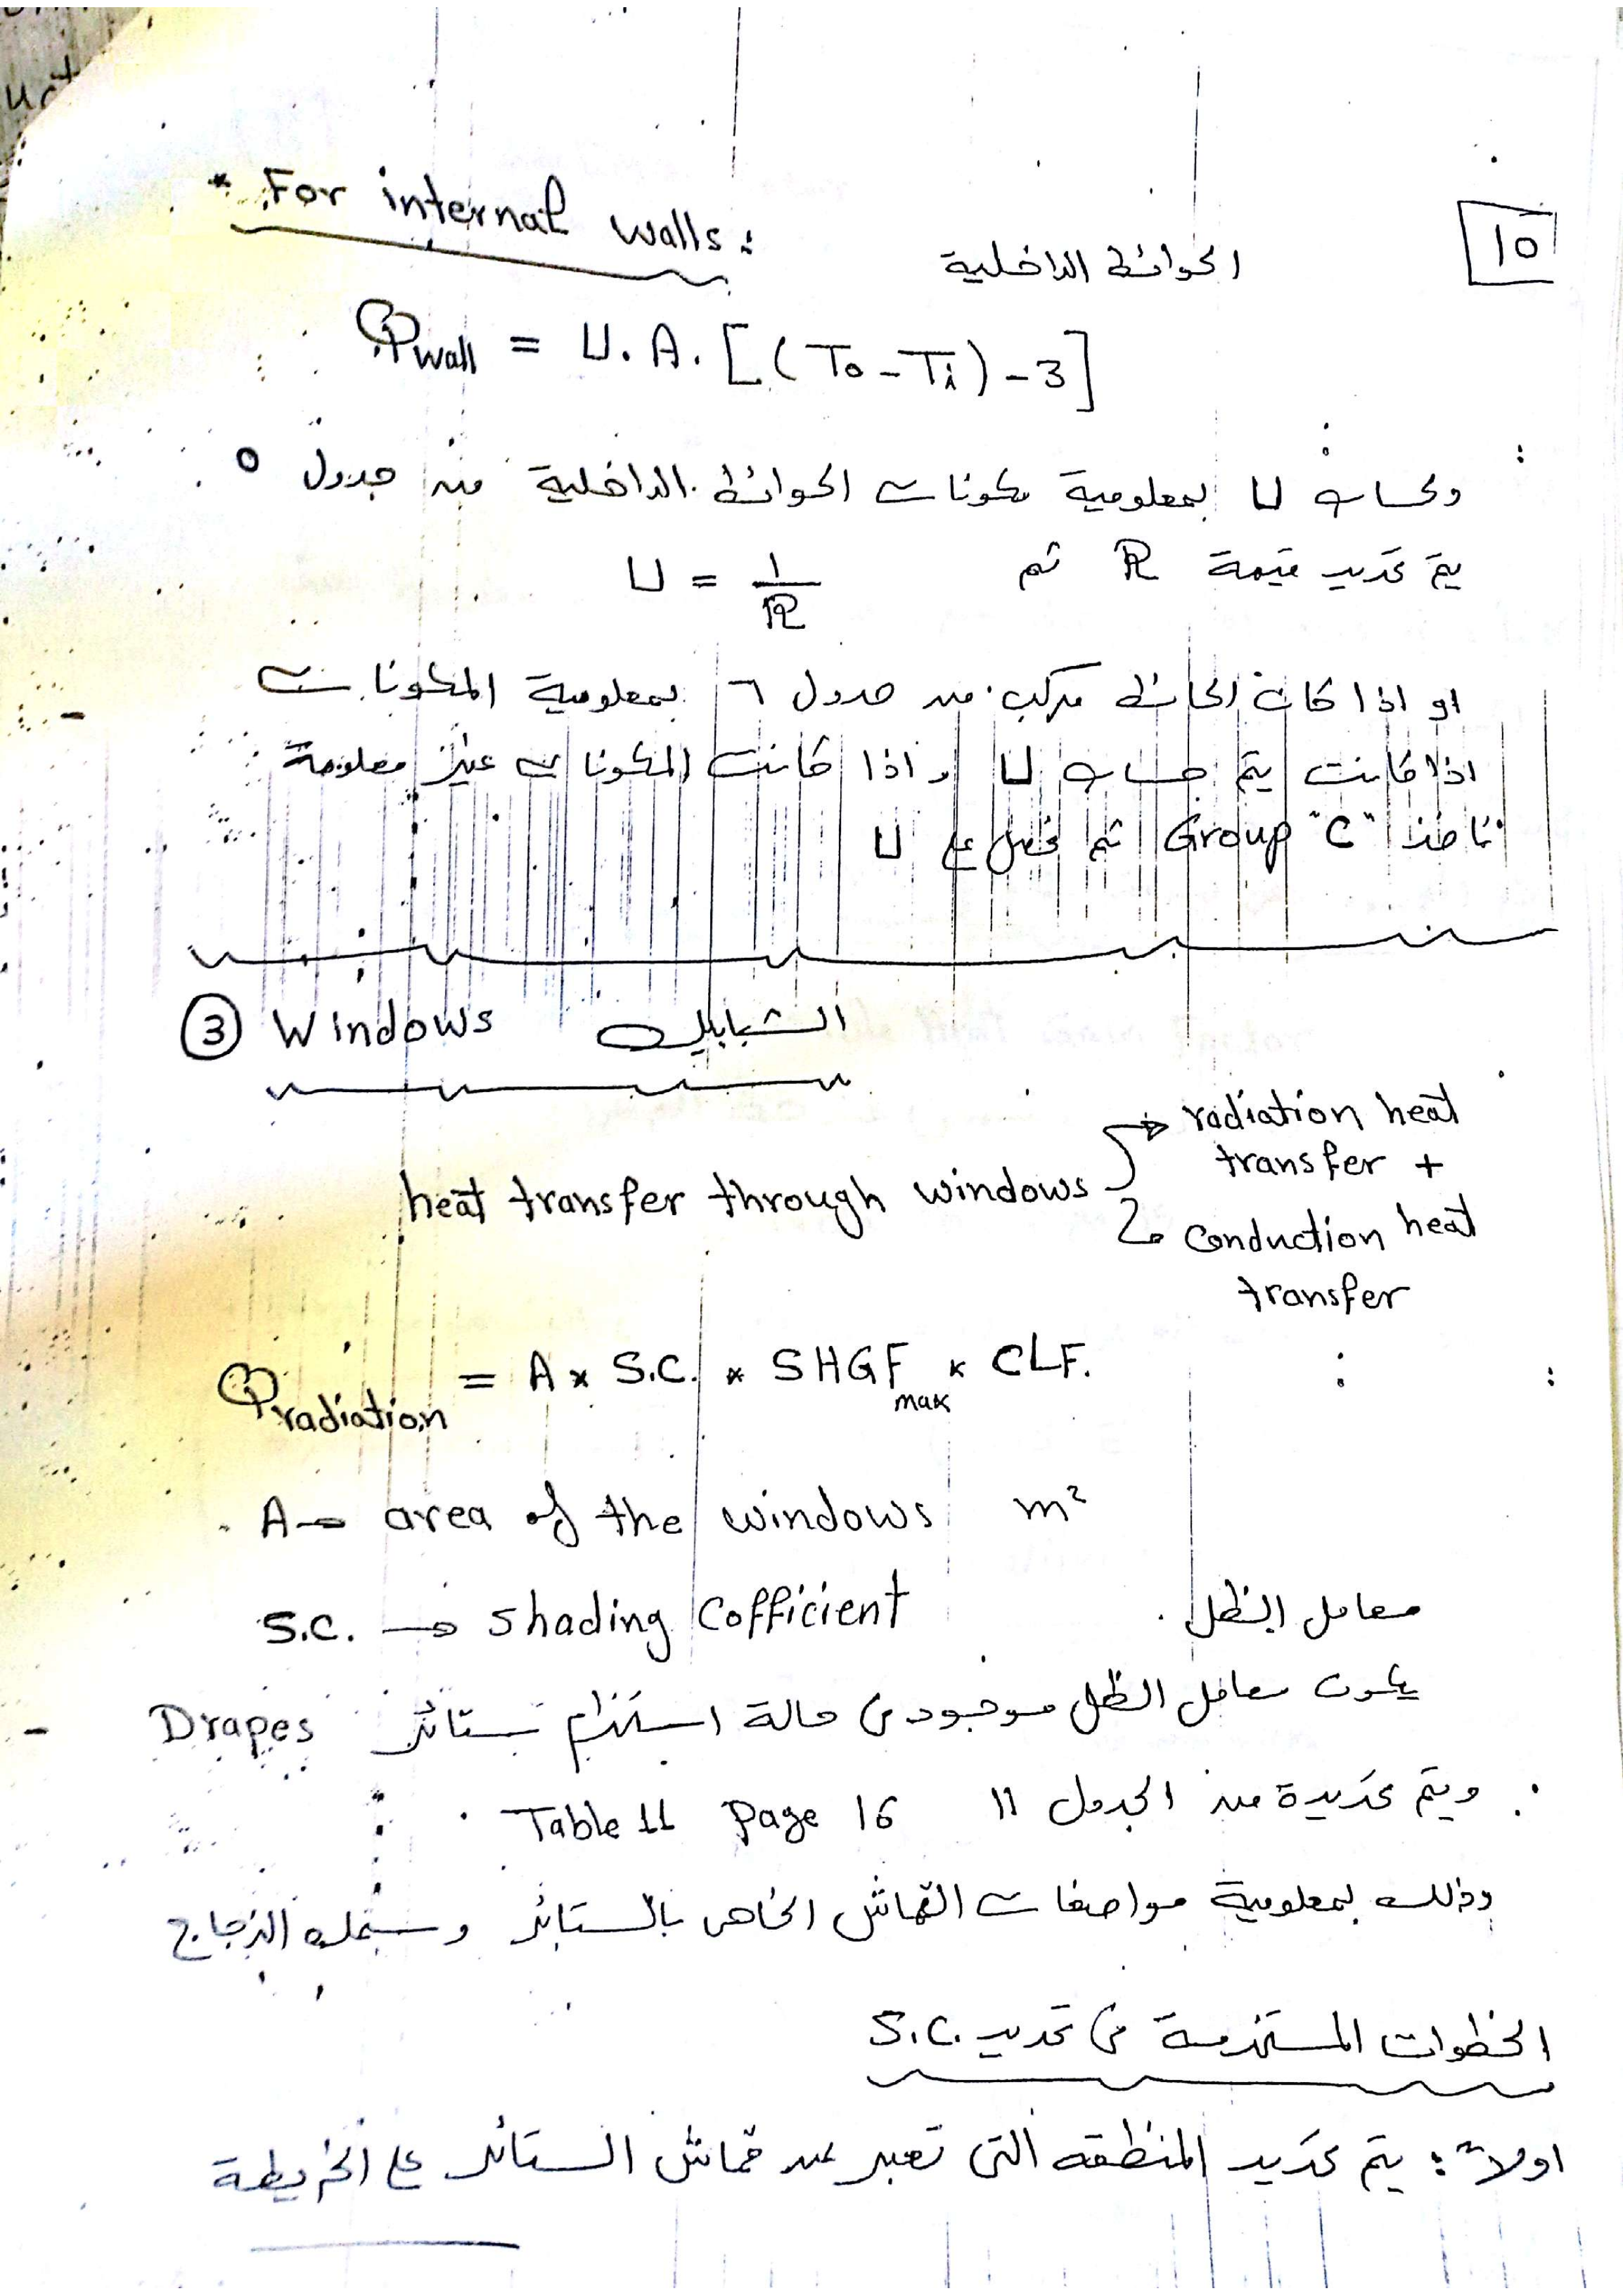 10
* For internal walls:
الحوائط الداخلية
Qwall = U. A. [(To - Ti) - 3]
ولحساب U بمعلومية مكونات الحوائط الداخلية من جدول ٥
يتم تحديد قيمة R ثم U = 1/R
او اذا كان الحائط مركب من جدول ٦ بمعلومية المكونات
اذا كانت يتم حساب U واذا كانت المكونات غير معلومة
نأخذ Group "C" ثم نحصل على U
③ Windows الشبابيك
heat transfer through windows
radiation heat
transfer +
conduction heat
transfer
Qradiation = A * S.C. * SHGFmax * CLF.
A → area of the windows m²
S.C. → shading Cofficient معامل الظل
يكون معامل الظل موجود في حالة استخدام ستائر Drapes
ويتم تحديدة من الجدول 11 Table 11 Page 16
وذلك بمعلومية مواصفات القماش الخاص بالستائر وسمك الزجاج
الخطوات المستخدمة في تحديد S.C.
اولاً: يتم تحديد المنطقه التى تعبر عن قماش الستائر على الخريطة